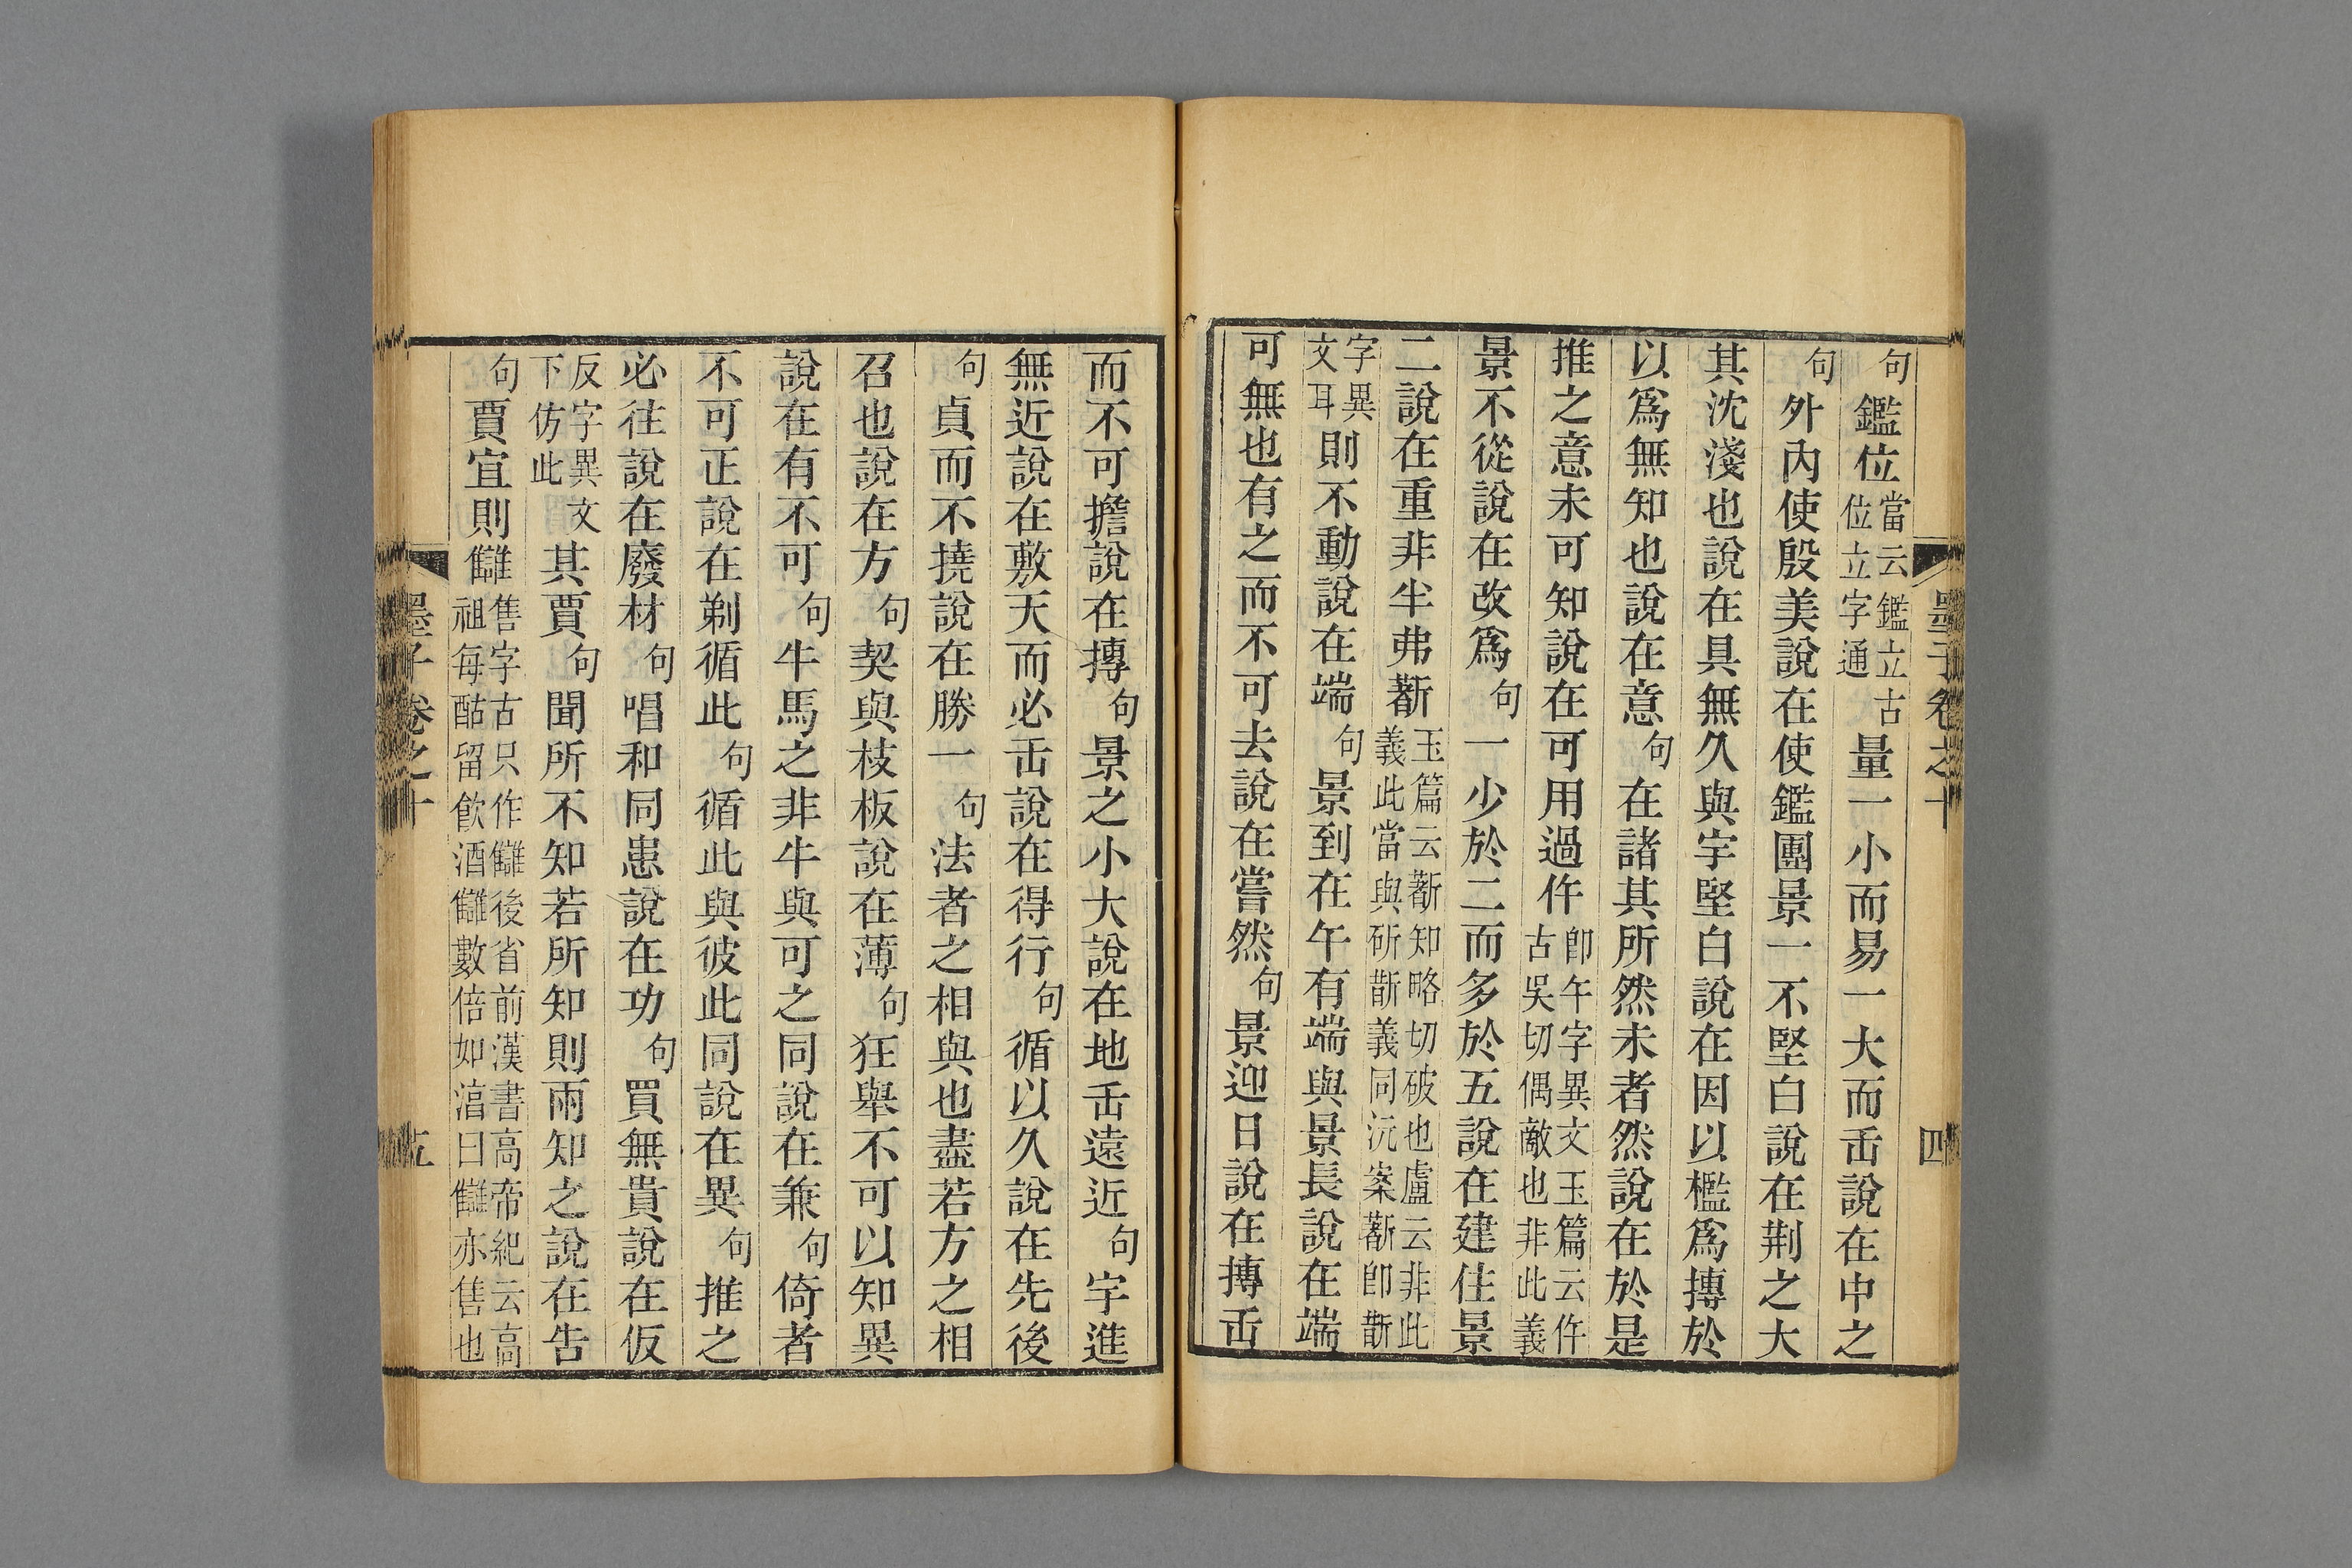 墨子卷之十 四
句鑑位當云鑑立古位立字通量一小而易一大而𠙽說在中之
句外內使殷美說在使鑑團景一不堅白說在荆之大
其沈淺也說在具無久與宇堅白說在因以檻爲摶於
以爲無知也說在意句在諸其所然未者然說在於是
推之意未可知說在可用過仵卽午字異文玉篇云仵古吳切偶敵也非此義
景不從說在改爲句一少於二而多於五說在建住景
二說在重非半弗𣂪玉篇云𣂪知略切破也盧云非此義此當與斫斮義同沅案𣂪卽斮
字異文耳則不動說在端句景到在午有端與景長說在端
可無也有之而不可去說在嘗然句景迎日說在摶𠙽
而不可擔說在摶句景之小大說在地𠙽遠近句宇進
無近說在敷天而必𠙽說在得行句循以久說在先後
句貞而不撓說在勝一句法者之相與也盡若方之相
召也說在方句契與枝板說在薄句狂舉不可以知異
說在有不可句牛馬之非牛與可之同說在兼句倚者
不可正說在剃循此句循此與彼此同說在異句推之
必往說在廢材句唱和同患說在功句買無貴說在仮
反字異文下仿此其賈句聞所不知若所知則兩知之說在告
句賈宜則讎售字古只作讎後省前漢書高帝紀云高祖每酤留飮酒讎數倍如湻曰讎亦售也
墨子卷之十 五